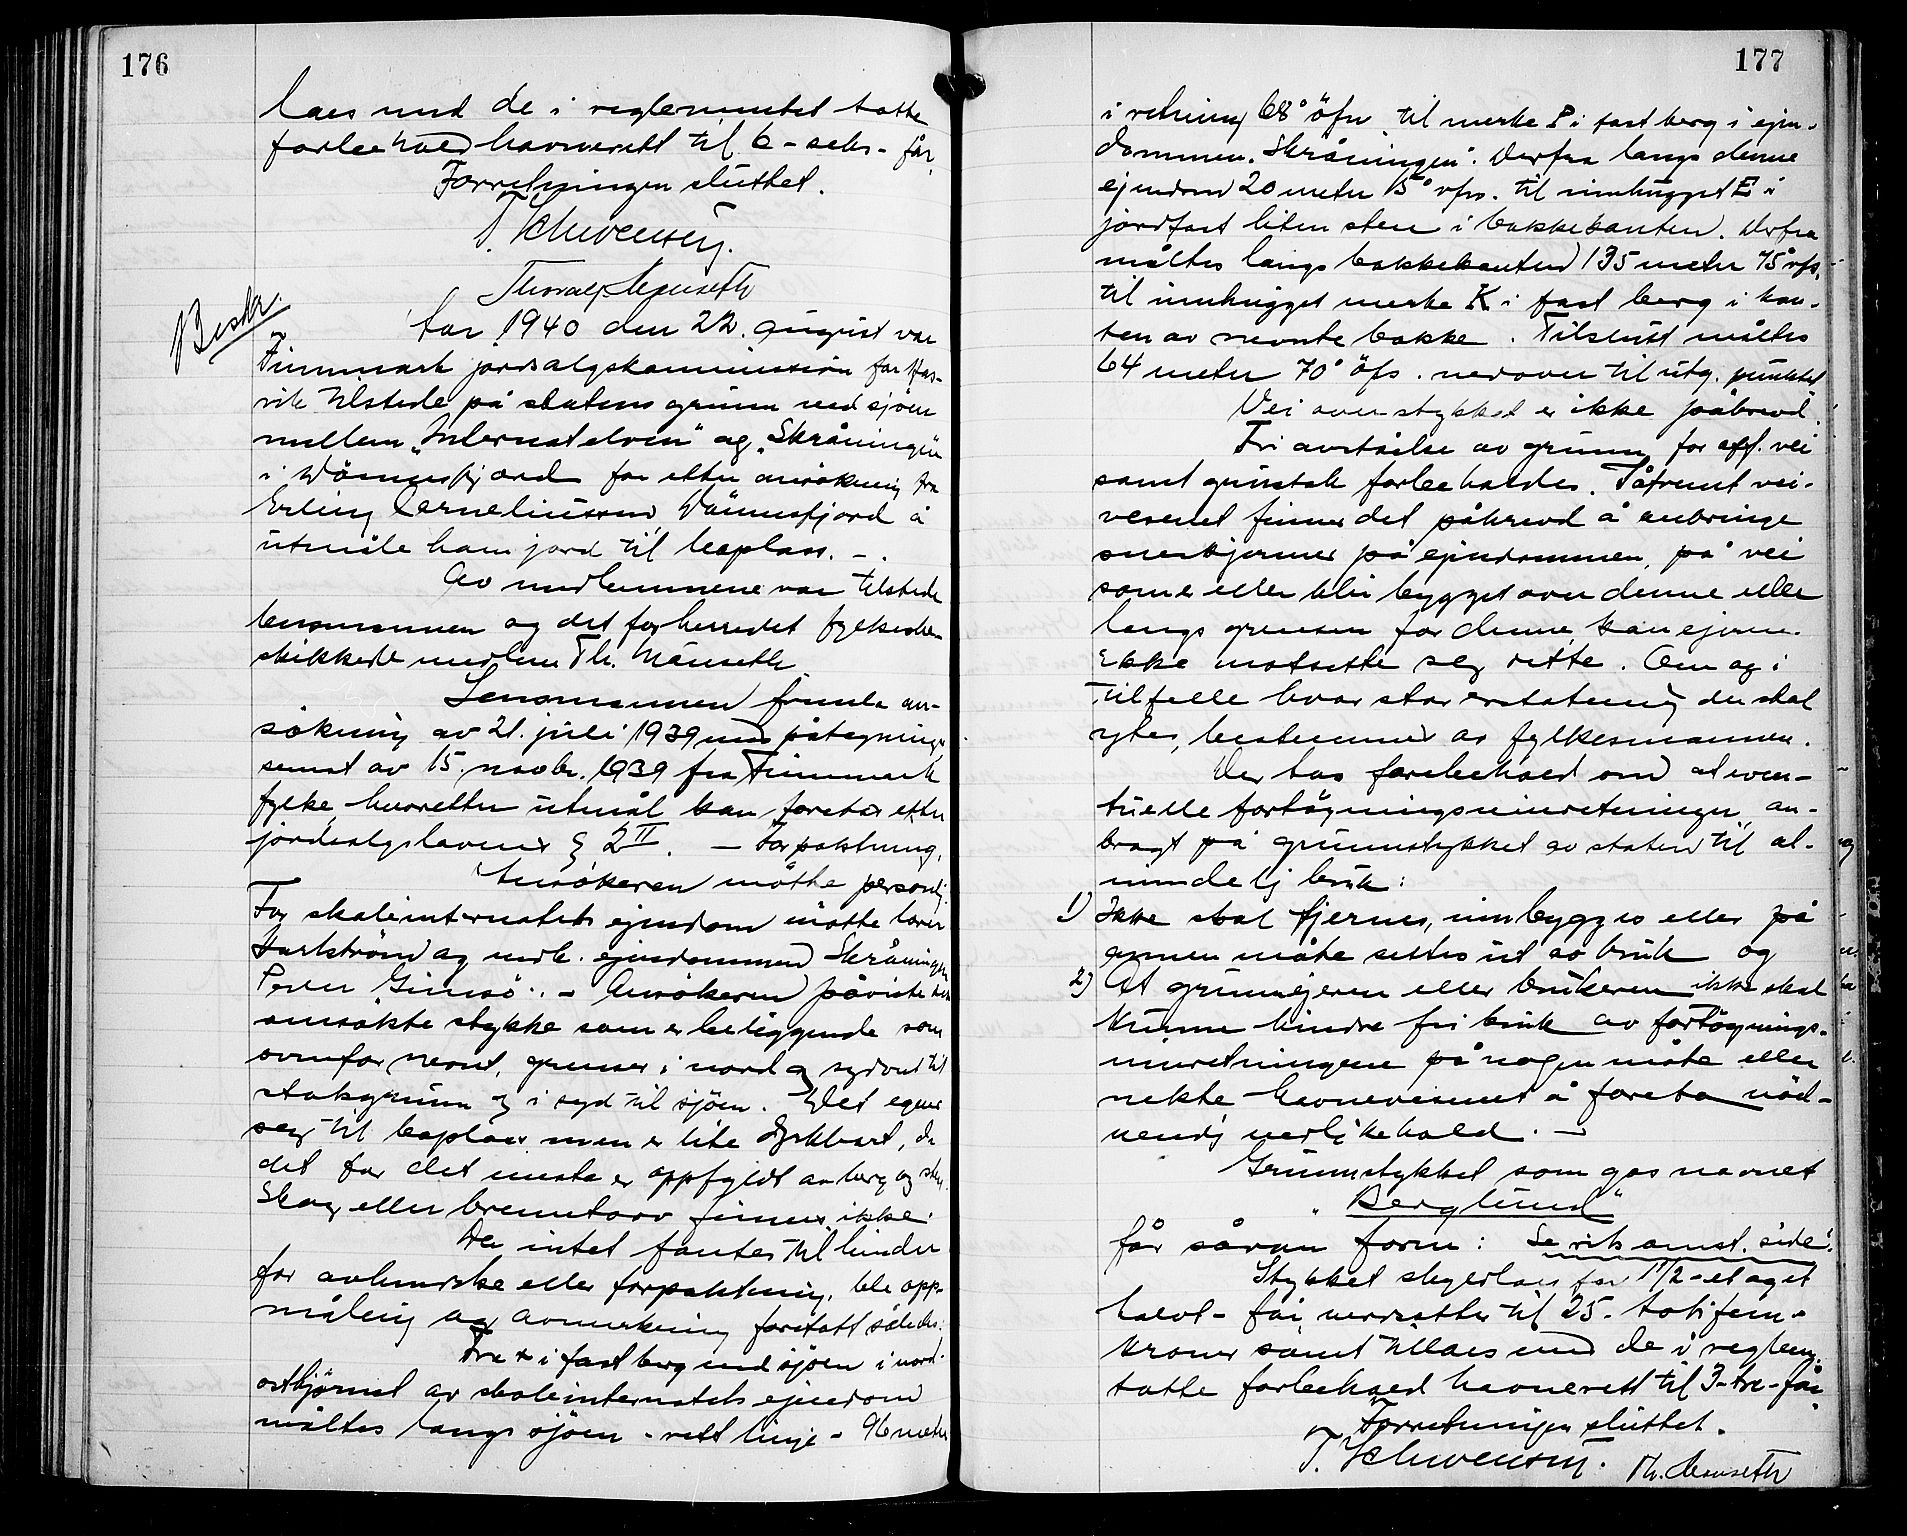 176
laes med de i reglementet tatte
forbehold havnerett til 6 - seks - får.
Forretningen sluttet.
T. Schwensen.
Thoralf Mauseth
Beskr.
År 1940 den 22. august var
Finnmark jordsalgskommission for Has-
vik tilstede på statens grunn ved sjöen
mellem "Internatelven" og "Skråningen"
i Dönnesfjord for etter ansökning fra
Erling Corneliussen, Dönnesfjord å
utmåle ham jord til boplass. -
Av medlemmene var tilstede
lensmannen og det for herredet fylkesbe-
skikkede medlem Th. Mauseth
Lensmannen fremla an-
sökning av 21. juli 1939 med påtegninger
senest av 15. novbr. 1939 fra Finnmark
fylke, hvoretter utmål kan foretas etter
jordsalgslovens § 2 II. - Forpaktning.
Ansökeren mötte personlig.
For skoleinternatets ejendom mötte lærer
Karlström og vedk. ejendommen Skråningen
Peder Gimsö. - Ansökeren påviste det
ansökte stykke som er beliggende som
ovenfor nevnt, grenser i nord og sydvest til
statsgrunn og i syd til sjöen. Det egner
seg til boplass men er lite dyrkbart, da
det for det meste er oppfyldt av berg og sten.
Skog eller brenntorv finnes ikke.
Da intet fantes til hinder
for avhendelse eller forpaktning, ble opp-
måling og avmerkning foretatt således:
Fra + i fast berg ved sjöen i nord-
osthjörnet av skoleinternatets ejendom
måltes langs sjöen - rett linje - 96 meter
177
i retning 68° öfn til merke P i fast berg i ejen-
dommen "Skråningen". Derfra langs denne
ejendom 20 meter 15° vfn. til innhugget E i
jordfast liten sten i bakkekanten. Derfra
måltes langs bakkekanten 135 meter 75° vfs.
til innhugget merke K i fast berg i kan-
ten av nevnte bakke. Tilslutt måltes
64 meter 70° öfs. nedover til utg. punktet.
Vei over stykket er ikke påkrevd.
Fri avståelse av grunn for off. vei
samt grustak forbeholdes. Såfremt vei-
vesenet finner det påkrevd å anbringe
sneskjermer på ejendommen, på vei
som er eller blir bygget over denne eller
langs grensen for denne, kan ejeren
ikke motsette seg dette. Om og i
tilfelle hvor stor erstatning der skal
ytes, bestemmes av fylkesmannen.
Der tas forbehold om at even-
tuelle fortöyningsinnretninger, an-
bragt på grunnstykket av staten til al-
mindelig bruk:
1) Ikke skal fjernes, innbygges eller på
annen måte settes ut av bruk og
2) At grunnejeren eller brukeren ikke skal
kunne hindre fri bruk av fortöynings-
innretningene på nogen måte eller
nekte havnevesenet å foreta nöd-
vendig vedlikehold. -
Grunnstykket som gas navnet
"Berglund"
får sådan form: Se rits omst. side.
Stykket skyldlaes for 1 1/2 - et og et
halvt - får, verdsattes til 25 - totifem -
kroner samt tillaes med de i reglem.
tatte forbehold havnerett til 3 - tre - får.
Forretningen sluttet.
T. Schwensen. Th. Mauseth